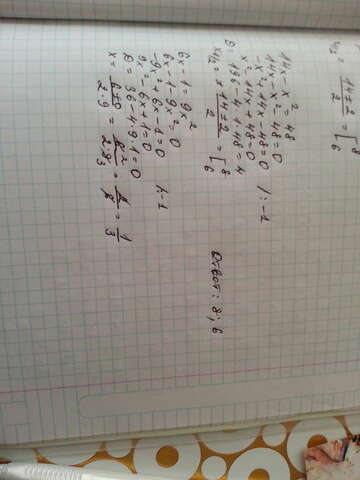 14x - x² = 48
14x - x² - 48 = 0
-x² + 14x - 48 = 0 /: -1
x² - 14x + 48 = 0
D = 196 - 4·1·48 = 4
x₁/₂ = (14 ± 2)/2 = [8 6
Ответ: 8; 6
6x - 1 = 9x²
6x - 1 - 9x² = 0
-9x² + 6x - 8 = 0 /: -1
9x² - 6x + 1 = 0
D = 36 - 4·9·1 = 0